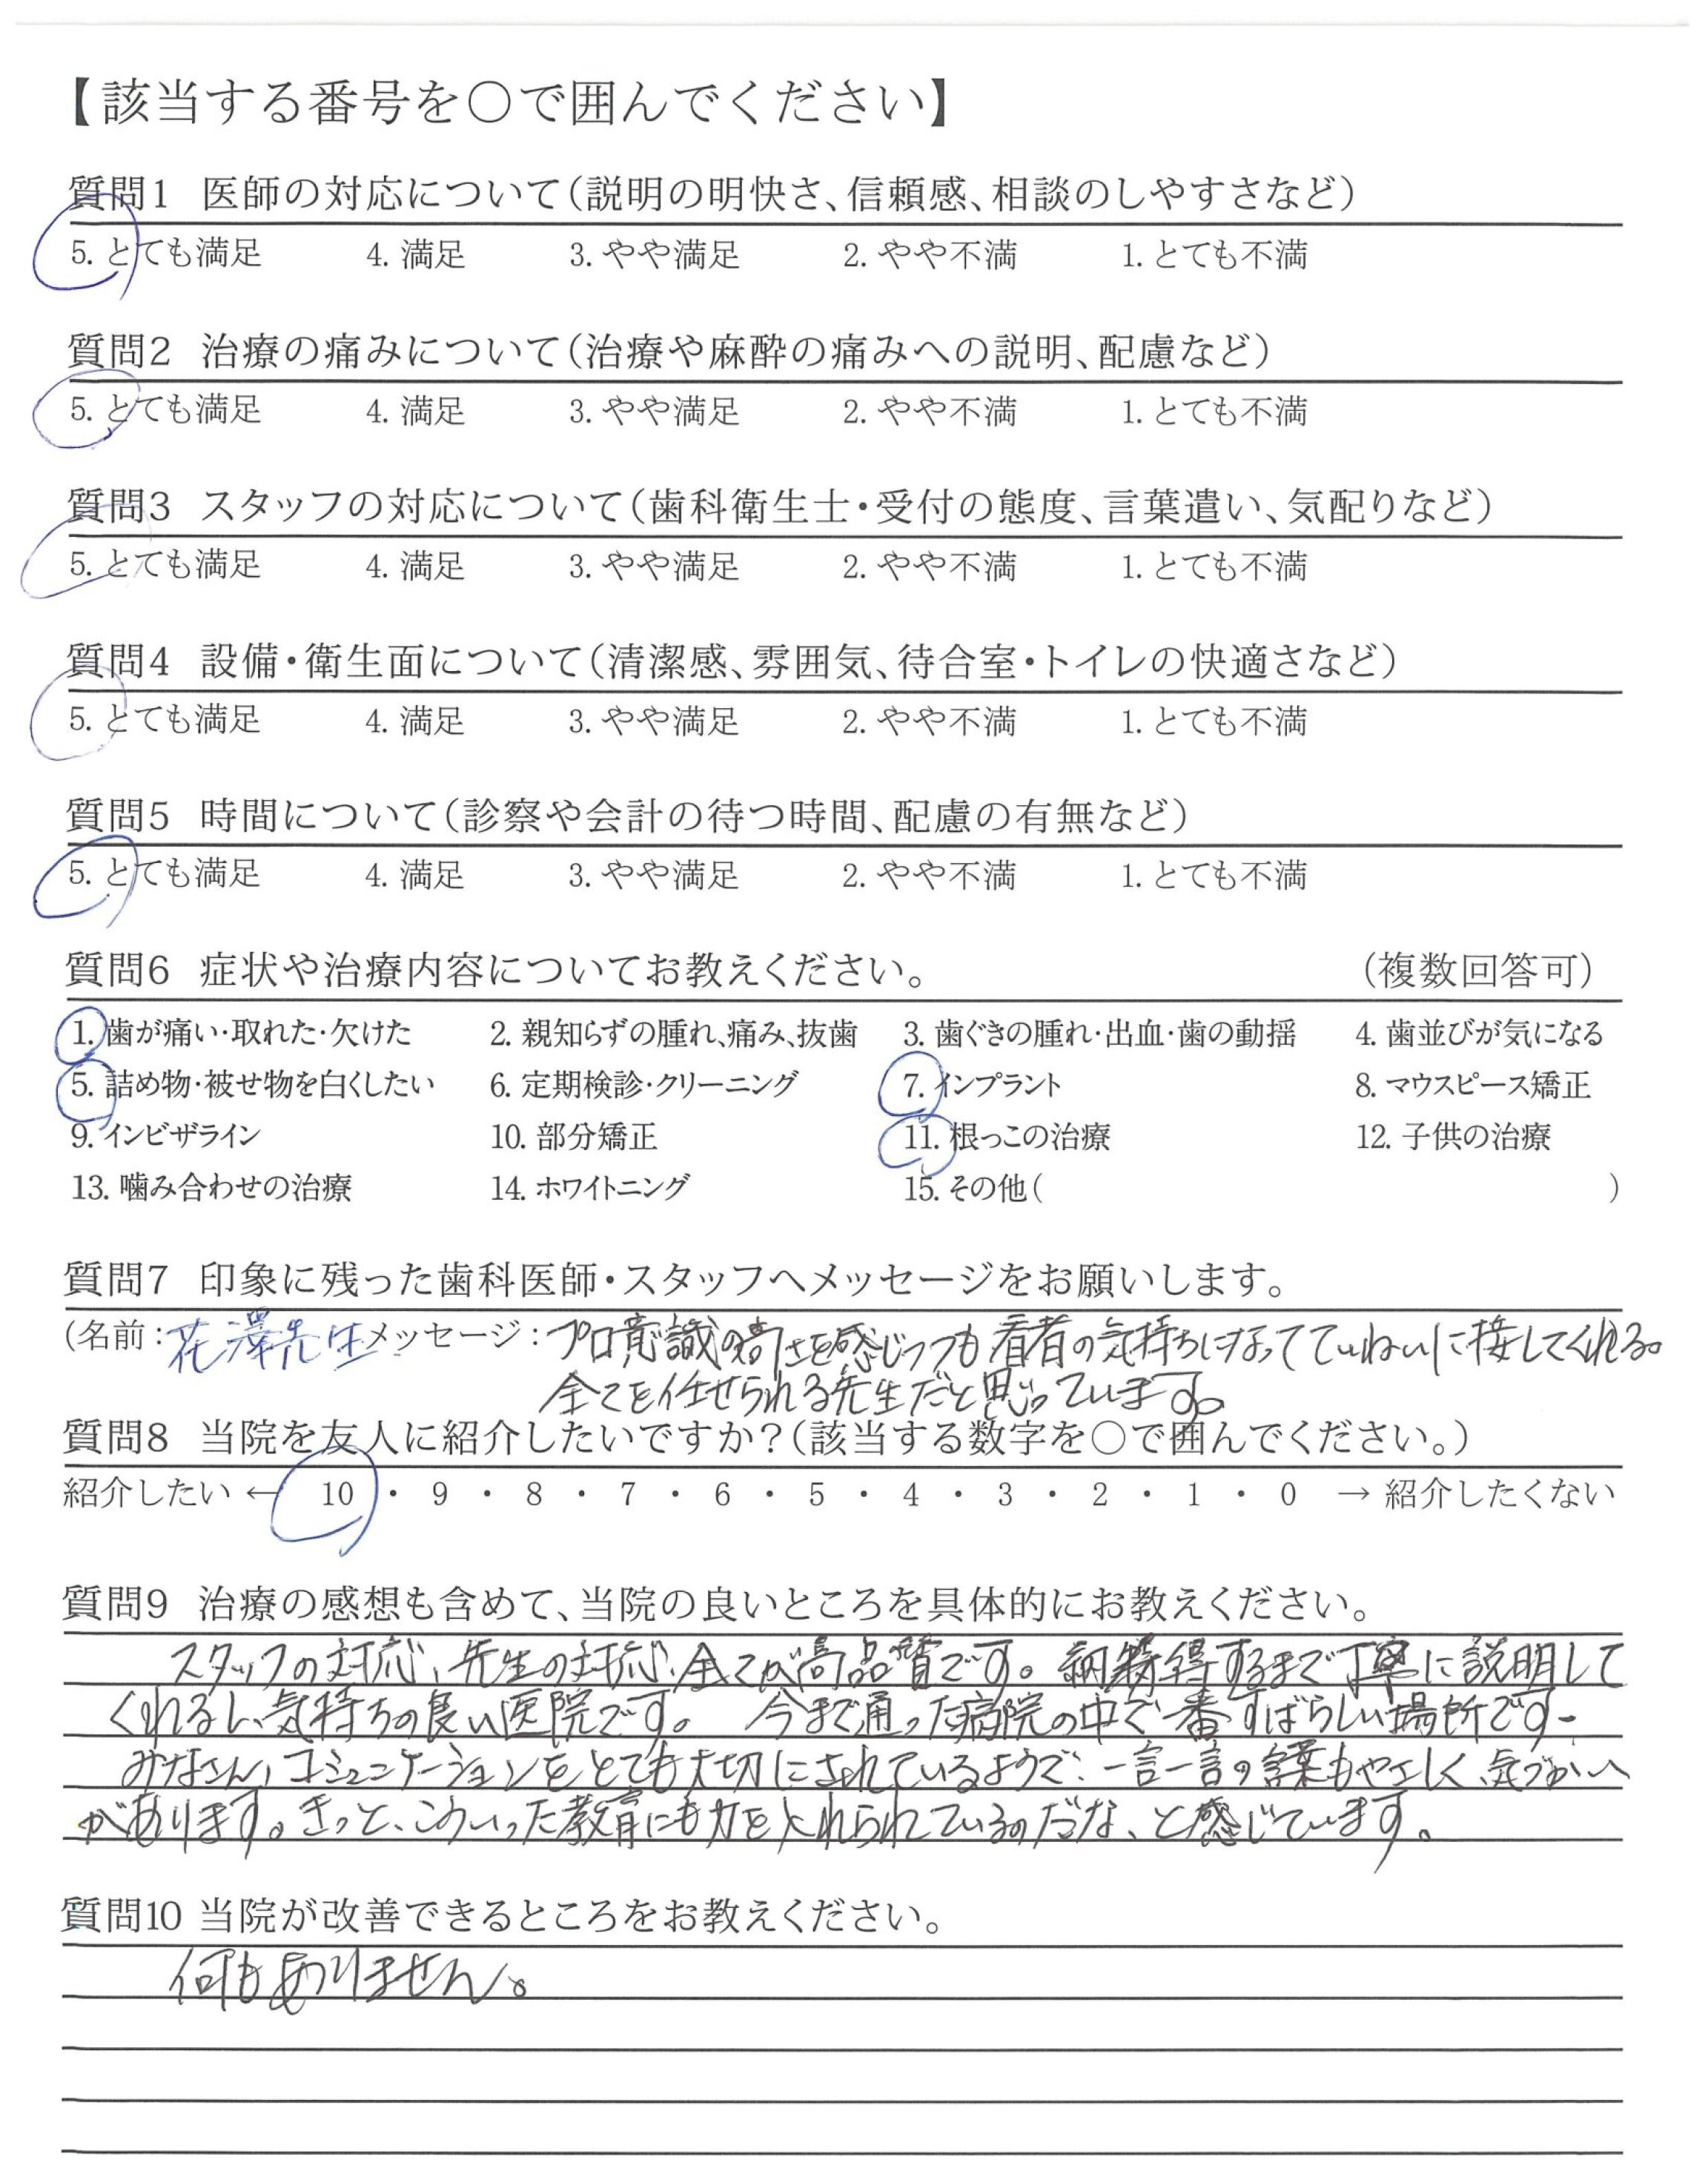 【該当する番号を○で囲んでください】
質問1 医師の対応について(説明の明快さ、信頼感、相談のしやすさなど)
5. とても満足 4. 満足 3. やや満足 2. やや不満 1. とても不満
質問2 治療の痛みについて(治療や麻酔の痛みへの説明、配慮など)
5. とても満足 4. 満足 3. やや満足 2. やや不満 1. とても不満
質問3 スタッフの対応について(歯科衛生士・受付の態度、言葉遣い、気配りなど)
5. とても満足 4. 満足 3. やや満足 2. やや不満 1. とても不満
質問4 設備・衛生面について(清潔感、雰囲気、待合室・トイレの快適さなど)
5. とても満足 4. 満足 3. やや満足 2. やや不満 1. とても不満
質問5 時間について(診察や会計の待つ時間、配慮の有無など)
5. とても満足 4. 満足 3. やや満足 2. やや不満 1. とても不満
質問6 症状や治療内容についてお教えください。 (複数回答可)
1. 歯が痛い・取れた・欠けた 2. 親知らずの腫れ、痛み、抜歯 3. 歯ぐきの腫れ・出血・歯の動揺 4. 歯並びが気になる
5. 詰め物・被せ物を白くしたい 6. 定期検診・クリーニング 7. インプラント 8. マウスピース矯正
9. インビザライン 10. 部分矯正 11. 根っこの治療 12. 子供の治療
13. 噛み合わせの治療 14. ホワイトニング 15. その他( )
質問7 印象に残った歯科医師・スタッフへメッセージをお願いします。
(名前:花澤先生 メッセージ:プロ意識の高さを感じつつも看者の気持ちになってていねいに接してくれる。
全てを任せられる先生だと思っています。
質問8 当院を友人に紹介したいですか?(該当する数字を○で囲んでください。)
紹介したい ← 10 ・ 9 ・ 8 ・ 7 ・ 6 ・ 5 ・ 4 ・ 3 ・ 2 ・ 1 ・ 0 → 紹介したくない
質問9 治療の感想も含めて、当院の良いところを具体的にお教えください。
スタッフの対応、先生の対応、全てが高品質です。納得するまで丁寧に説明して
くれるし、気持ちの良い医院です。 今まで通った病院の中で一番すばらしい場所です。
みなさん、コミュニケーションをとても大切にされているようで、一言一言の言葉もやさしく、気づかい
があります。きっと、こういった教育にも力を入れられているのだな、と感じています。
質問10 当院が改善できるところをお教えください。
何もありません。